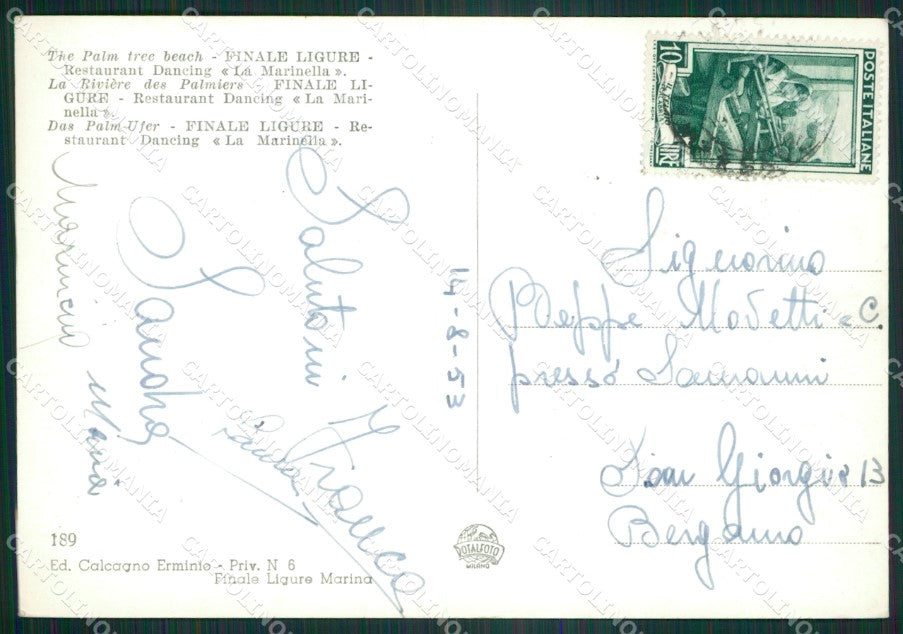 The Palm tree beach - FINALE LIGURE -
Restaurant Dancing « La Marinella ».
La Rivière des Palmiers - FINALE LI-
GURE - Restaurant Dancing « La Mari-
nella ».
Das Palm-Ufer - FINALE LIGURE - Re-
staurant Dancing « La Marinella ».
Salutoni
Franca
Sandra
Maria
14-8-53
10
LIRE
POSTE ITALIANE
Signorino
Beppe Modetti - C.
presso
San Giorgio 13
Bergamo
189
Ed. Calcagno Erminio - Priv. N 6
Finale Ligure Marina
ROTALFOTO
MILANO
CARTOLINOMANIA